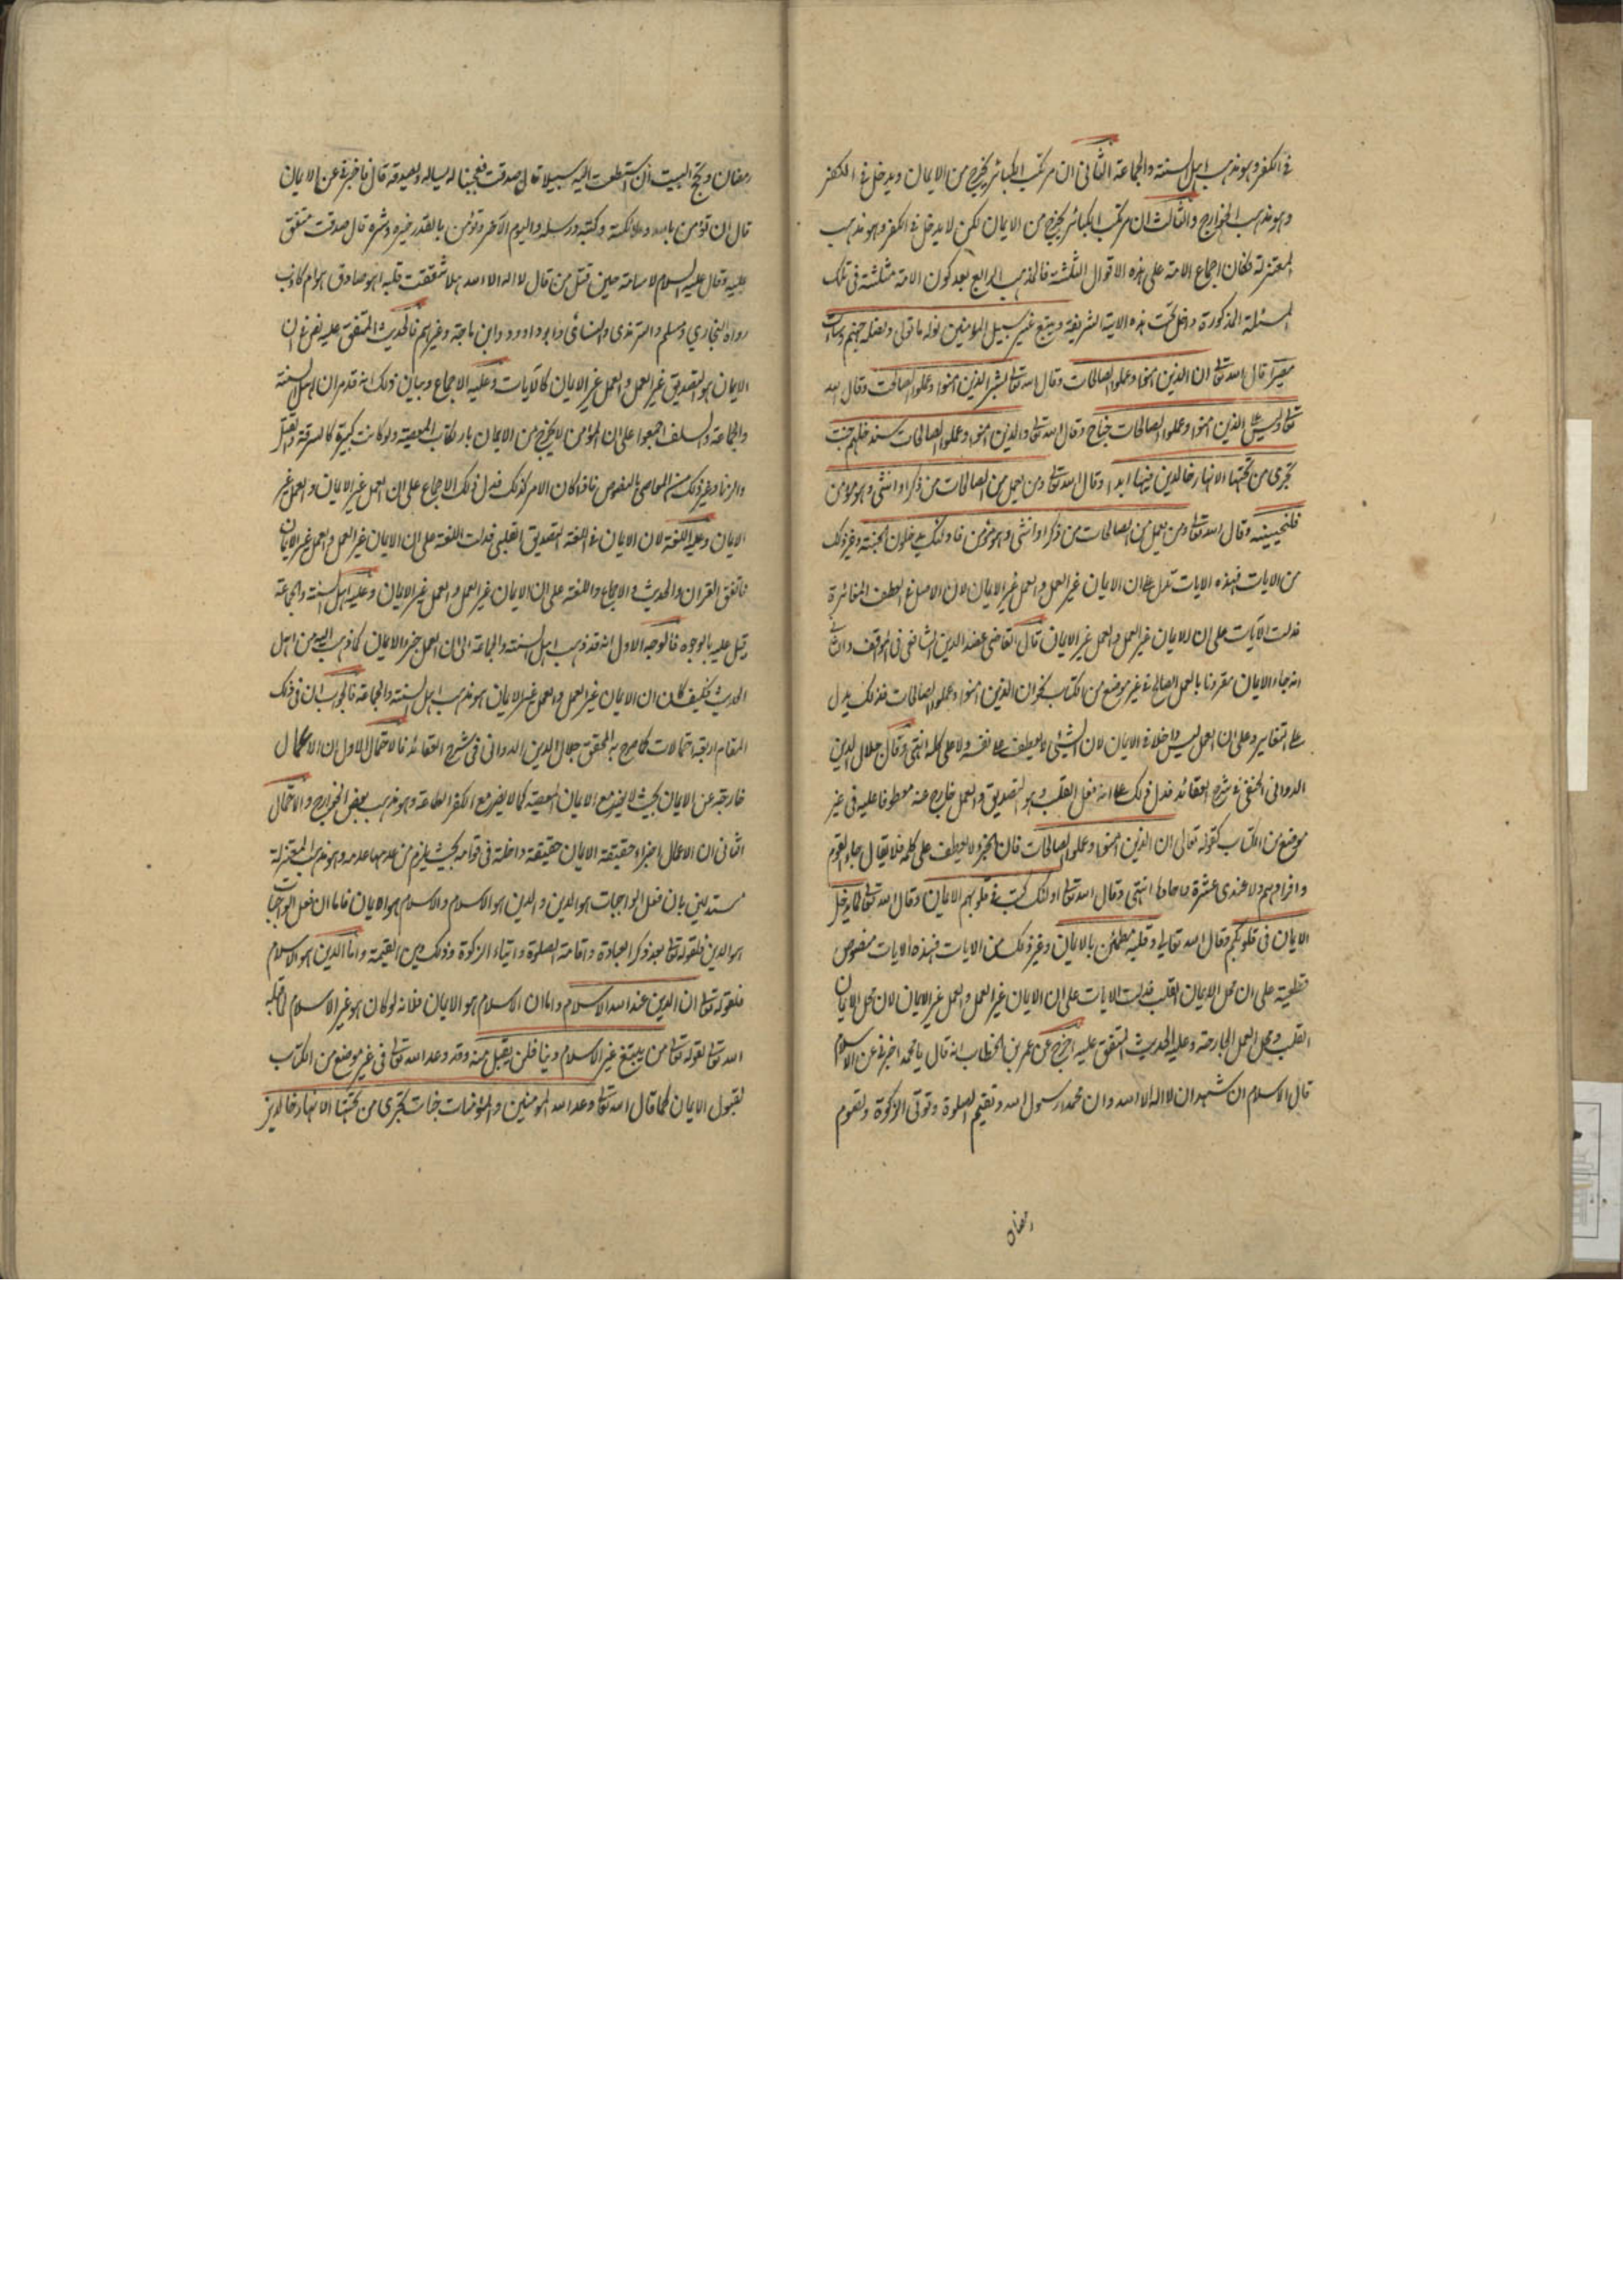 في الكفر وهو مذهب اهل السنة والجماعة الثاني ان مرتكب الكبائر يخرج من الايمان ويدخل في الكفر
وهو مذهب الخوارج والثالث ان مرتكب الكبائر يخرج من الايمان لكن لا يدخل في الكفر وهو مذهب
المعتزلة فكان اجماع الامة على هذه الاقوال الثلثة فالمذهب الرابع بعد كون الامة مثلثة في تلك
المسئلة المذكورة داخل تحت هذه الاية الشريفة ويتبع غير سبيل المؤمنين نوله ما تولى ونصله جهنم وساءت
مصيرا قال الله تعالى ان الذين امنوا وعملوا الصالحات وقال الله تعالى وبشر الذين امنوا وعملوا الصالحات وقال الله
تعالى ليس على الذين امنوا وعملوا الصالحات جناح وقال الله تعالى والذين امنوا وعملوا الصالحات سندخلهم جنت
تجرى من تحتها الانهار خالدين فيها ابدا وقال الله تعالى ومن يعمل من الصالحات من ذكر او انثى وهو مؤمن
فلنحيينه وقال الله تعالى ومن يعمل من الصالحات من ذكر او انثى وهو مؤمن فاولئك يدخلون الجنة وغير ذلك
من الايات فهذه الايات تدل على ان الايمان غير العمل والعمل غير الايمان لان الاصل في العطف المغائرة
فدلت الآيات على ان الايمان غير العمل والعمل غير الايمان قال القاضي عضد الدين الشافعي في المواقف
انه جاء الايمان مقرونا بالعمل الصالح في غير موضع من الكتاب نحو ان الذين امنوا وعملوا الصالحات فذلك يدل
على التغاير وعلى ان العمل ليس داخلا في الايمان لان الشيئ لا يعطف على نفسه ولا على كله انتهى وقال جلال الدين
الدواني الحنفي في شرح العقائد فدل ذلك على انه فعل القلب وهو التصديق والعمل خارج عنه معطوفا عليه في غير
موضع من الكتاب كقوله تعالى ان الذين امنوا وعملوا الصالحات فان الجزء لا يعطف على كله فلا يقال جاء القوم
وافرادهم ولا عندى عشرة واحادها انتهى وقال الله تعالى اولئك كتب في قلوبهم الايمان وقال الله تعالى لما يدخل
الايمان في قلوبكم وقال الله تعالى وقلبه مطمئن بالايمان وغير ذلك من الايات فهذه الايات نصوص
قطعية على ان محل الايمان القلب فدلت الايات على ان الايمان غير العمل والعمل غير الايمان لان محل الايمان
القلب ومحل العمل الجارحة وعليه الحديث المتفق عليه اخرج عن عمر بن الخطاب انه قال يا محمد اخبرني عن الاسلام
قال الاسلام ان تشهد ان لا اله الا الله وان محمدا رسول الله وتقيم الصلوة وتوتى الزكوة وتصوم
رمضان
رمضان وتحج البيت ان استطعت اليه سبيلا قال صدقت فعجبنا له يساله ويصدقه قال فاخبرني عن الايمان
قال ان تؤمن بالله وملائكته وكتبه ورسله واليوم الآخر وتؤمن بالقدر خيره وشره قال صدقت متفق
عليه وقال عليه السلام لاسامة حين قتل من قال لا اله الا الله هلا شققت قلبه اهو صادق ام كاذب
رواه البخاري ومسلم والترمذى والنسائى وابو داود وابن ماجة وغيرهم فالحديث المتفق عليه نص في ان
الايمان هو التصديق غير العمل والعمل غير الايمان كالآيات وعليه الاجماع وبيان ذلك انه قدم ان اهل السنة
والجماعة والسلف اجمعوا على ان المؤمن لا يخرج من الايمان بارتكاب المعصية ولو كانت كبيرة كالسرقة والقتل
والزنا وغير ذلك من المعاصى بالنصوص فاذا كان الامر كذلك فدل ذلك الاجماع على ان العمل غير الايمان والعمل غير
الايمان وعليه اللغة لان الايمان في اللغة التصديق القلبي فدلت اللغة على ان الايمان غير العمل والعمل غير الايمان
فاتفق القران والحديث والاجماع واللغة على ان الايمان غير العمل والعمل غير الايمان وعليه اهل السنة والجماعة
قيل عليه بالوجوه فالوجه الاول انه قد ذهب اهل السنة والجماعة الى ان العمل جزء الايمان كما ذهب اليه من اهل
الحديث فكيف كان ان الايمان غير العمل والعمل غير الايمان هو مذهب اهل السنة والجماعة فالجواب ان في ذلك
المقام اربعة احتمالات كما صرح به المحقق جلال الدين الدواني في شرح العقائد فالاحتمال الاول ان الاعمال
خارجة عن الايمان بحيث لا يضر مع الايمان المعصية كما لا يضر مع الكفر الطاعة وهو مذهب بعض الخوارج والاحتمال
الثاني ان الاعمال اجزاء حقيقة الايمان حقيقة داخلة في قوامه بحيث يلزم من عدمها عدمه وهو مذهب المعتزلة
مستدلين بان فعل الواجبات هو الدين والدين هو الاسلام والاسلام هو الايمان فاما ان فعل الواجبات
هو الدين فلقوله تعالى بعد ذكر العبادة واقامة الصلوة وايتاء الزكوة وذلك دين القيمة واما الدين هو الاسلام
فلقوله تعالى ان الدين عند الله الاسلام واما ان الاسلام هو الايمان فلانه لو كان هو غير الاسلام لما قبله
الله تعالى لقوله تعالى من يبتغ غير الاسلام دينا فلن يقبل منه وقد وعد الله تعالى في غير موضع من الكتاب
لقبول الايمان كما قال الله تعالى وعد الله المؤمنين والمؤمنات جنات تجرى من تحتها الانهار خالدين